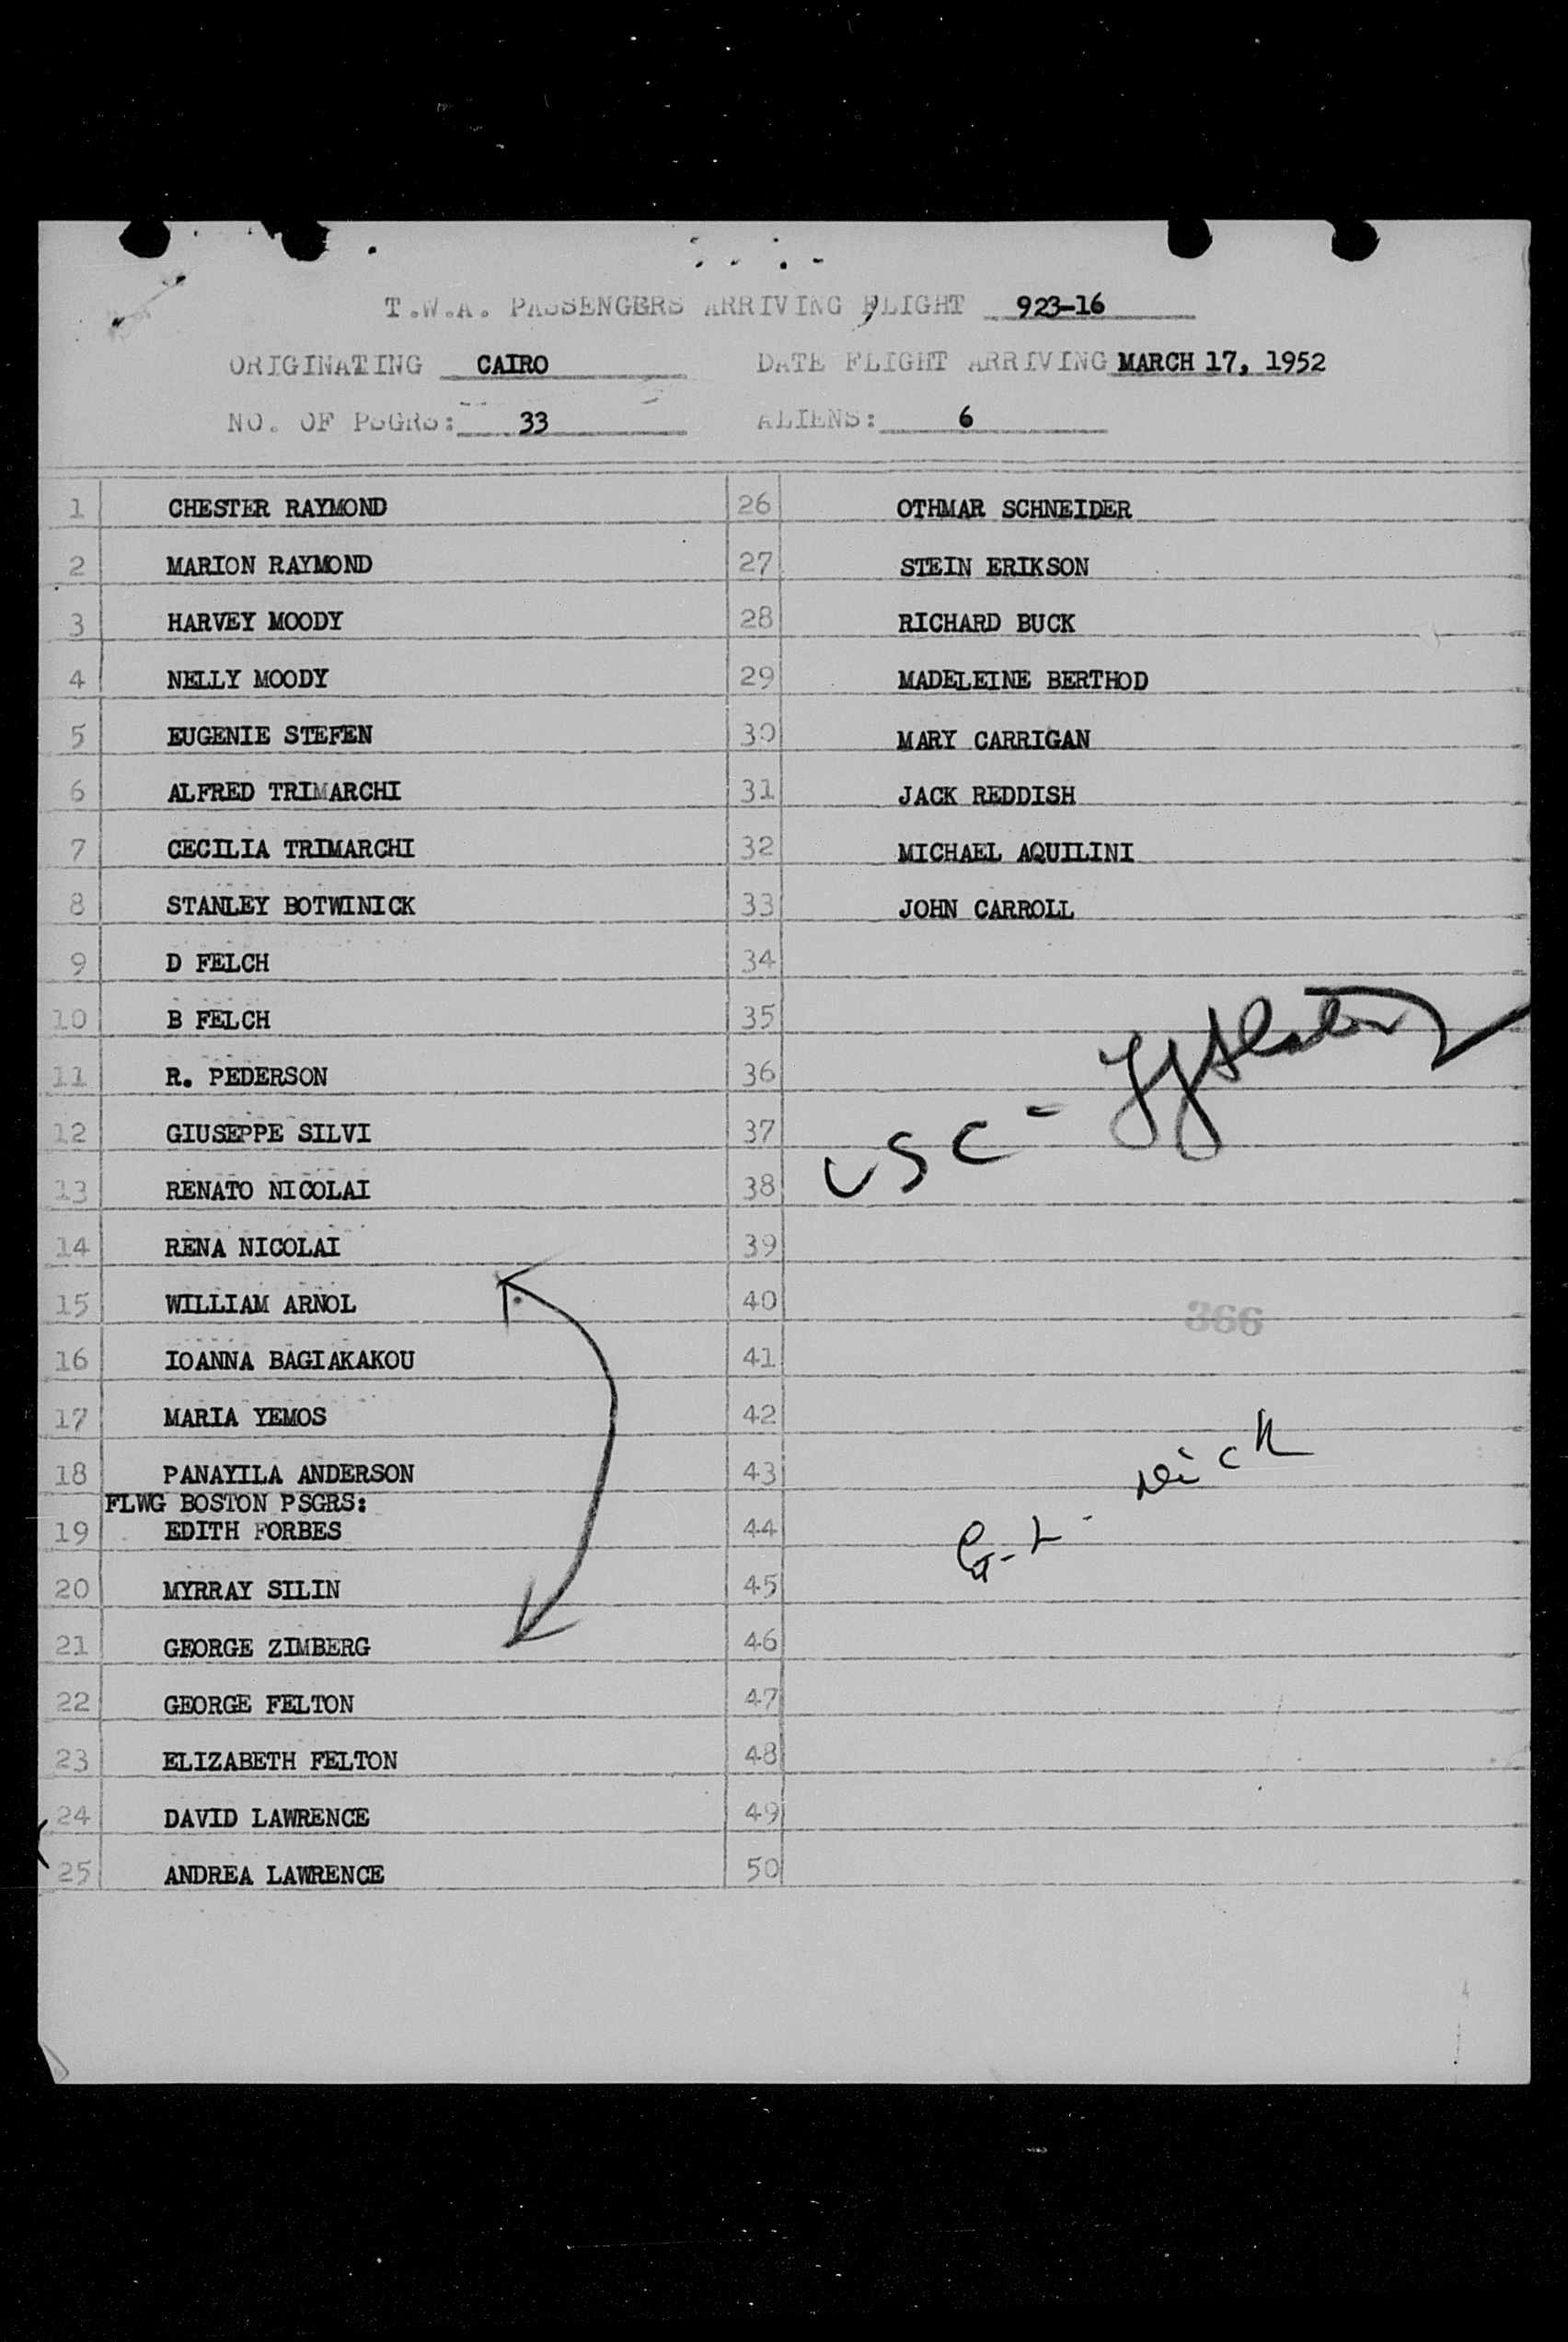 T.W.A. PASSENGERS ARRIVING FLIGHT 923-16
ORIGINATING CAIRO DATE FLIGHT ARRIVING MARCH 17, 1952
NO. OF PSGRS: 33 ALIENS: 6
1 CHESTER RAYMOND
2 MARION RAYMOND
3 HARVEY MOODY
4 NELLY MOODY
5 EUGENIE STEFEN
6 ALFRED TRIMARCHI
7 CECILIA TRIMARCHI
8 STANLEY BOTWINICK
9 D FELCH
10 B FELCH
11 R. PEDERSON
12 GIUSEPPE SILVI
13 RENATO NICOLAI
14 RENA NICOLAI
15 WILLIAM ARNOL
16 IOANNA BAGIAKAKOU
17 MARIA YEMOS
18 PANAYILA ANDERSON
FLWG BOSTON PSGRS:
19 EDITH FORBES
20 MYRRAY SILIN
21 GEORGE ZIMBERG
22 GEORGE FELTON
23 ELIZABETH FELTON
24 DAVID LAWRENCE
25 ANDREA LAWRENCE
26 OTHMAR SCHNEIDER
27 STEIN ERIKSON
28 RICHARD BUCK
29 MADELEINE BERTHOD
30 MARY CARRIGAN
31 JACK REDDISH
32 MICHAEL AQUILINI
33 JOHN CARROLL
34
35
36
37
38
USC -
39
40
366
41
42
43
44
45
46
47
48
49
50